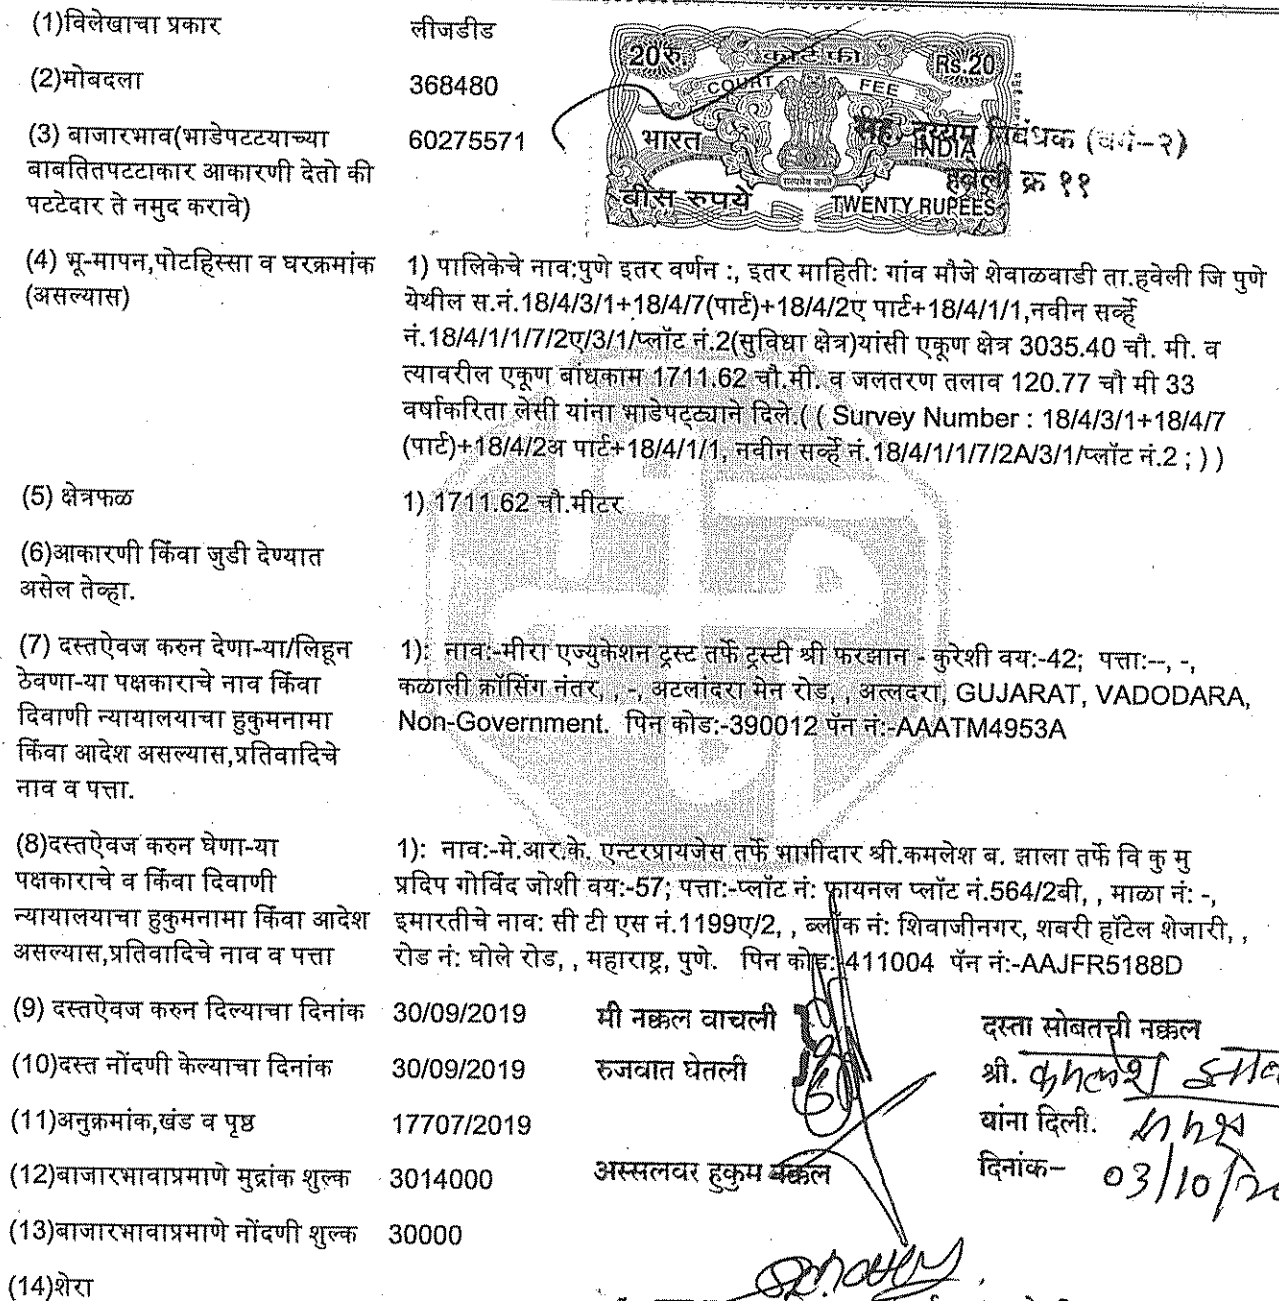 (1)विलेखाचा प्रकार लीजडीड
(2)मोबदला 368480
(3) बाजारभाव(भाडेपटटयाच्या 60275571
बाबतितपटटाकार आकारणी देतो की
पटटेदार ते नमुद करावे)
20रु. कोर्ट फी Rs.20
COURT FEE
भारत INDIA
सत्यमेव जयते
बीस रुपये TWENTY RUPEES
सह. दुय्यम निबंधक (वर्ग-२)
हवेली क्र ११
(4) भू-मापन,पोटहिस्सा व घरक्रमांक
(असल्यास)
1) पालिकेचे नाव:पुणे इतर वर्णन :, इतर माहिती: गांव मौजे शेवाळवाडी ता.हवेली जि पुणे
येथील स.नं.18/4/3/1+18/4/7(पार्ट)+18/4/2ए पार्ट+18/4/1/1,नवीन सर्व्हे
नं.18/4/1/1/7/2ए/3/1/प्लॉट नं.2(सुविधा क्षेत्र)यांसी एकूण क्षेत्र 3035.40 चौ. मी. व
त्यावरील एकूण बांधकाम 1711.62 चौ.मी. व जलतरण तलाव 120.77 चौ मी 33
वर्षाकरिता लेसी यांना भाडेपट्ट्याने दिले.( ( Survey Number : 18/4/3/1+18/4/7
(पार्ट)+18/4/2अ पार्ट+18/4/1/1, नवीन सर्व्हे नं.18/4/1/1/7/2A/3/1/प्लॉट नं.2 ; ) )
(5) क्षेत्रफळ 1) 1711.62 चौ.मीटर
(6)आकारणी किंवा जुडी देण्यात
असेल तेव्हा.
(7) दस्तऐवज करुन देणा-या/लिहून
ठेवणा-या पक्षकाराचे नाव किंवा
दिवाणी न्यायालयाचा हुकुमनामा
किंवा आदेश असल्यास,प्रतिवादिचे
नाव व पत्ता.
1): नाव:-मीरा एज्युकेशन ट्रस्ट तर्फे ट्रस्टी श्री फरझान - कुरेशी वय:-42; पत्ता:--, -,
कळाली क्रॉसिंग नंतर, , -, अटलांदरा मेन रोड, , अत्लदरा, GUJARAT, VADODARA,
Non-Government. पिन कोड:-390012 पॅन नं:-AAATM4953A
(8)दस्तऐवज करुन घेणा-या
पक्षकाराचे व किंवा दिवाणी
न्यायालयाचा हुकुमनामा किंवा आदेश
असल्यास,प्रतिवादिचे नाव व पत्ता
1): नाव:-मे.आर.के. एन्टरप्रायजेस तर्फे भागीदार श्री.कमलेश ब. झाला तर्फे वि कु मु
प्रदिप गोविंद जोशी वय:-57; पत्ता:-प्लॉट नं: फायनल प्लॉट नं.564/2बी, , माळा नं: -,
इमारतीचे नाव: सी टी एस नं.1199ए/2, , ब्लॉक नं: शिवाजीनगर, शबरी हॉटेल शेजारी, ,
रोड नं: घोले रोड, , महाराष्ट्र, पुणे. पिन कोड:-411004 पॅन नं:-AAJFR5188D
(9) दस्तऐवज करुन दिल्याचा दिनांक 30/09/2019 मी नक्कल वाचली
दस्ता सोबतची नक्कल
(10)दस्त नोंदणी केल्याचा दिनांक 30/09/2019 रुजवात घेतली
श्री. कमलेश झाला
(11)अनुक्रमांक,खंड व पृष्ठ 17707/2019 यांना दिली.
(12)बाजारभावाप्रमाणे मुद्रांक शुल्क 3014000 अस्सलवर हुकुम नक्कल दिनांक- 03/10/20
(13)बाजारभावाप्रमाणे नोंदणी शुल्क 30000
(14)शेरा